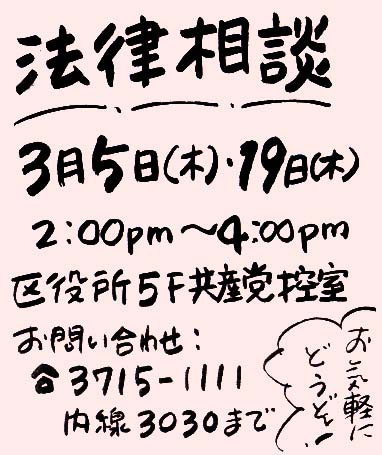 法律相談
3月5日(木)・19日(木)
2:00pm〜4:00pm
区役所5F共産党控室
お問い合わせ:
☎3715-1111
内線3030まで
お気軽に
どうぞ!